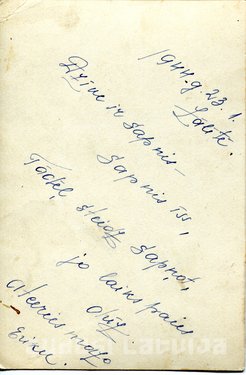 1944.g. 23. 1.
Dzīve ir sapnis —
Sapnis īss,
Tādēļ steidz sapņot,
jo laiks paies
drīz
Atceries mazo
Latvija